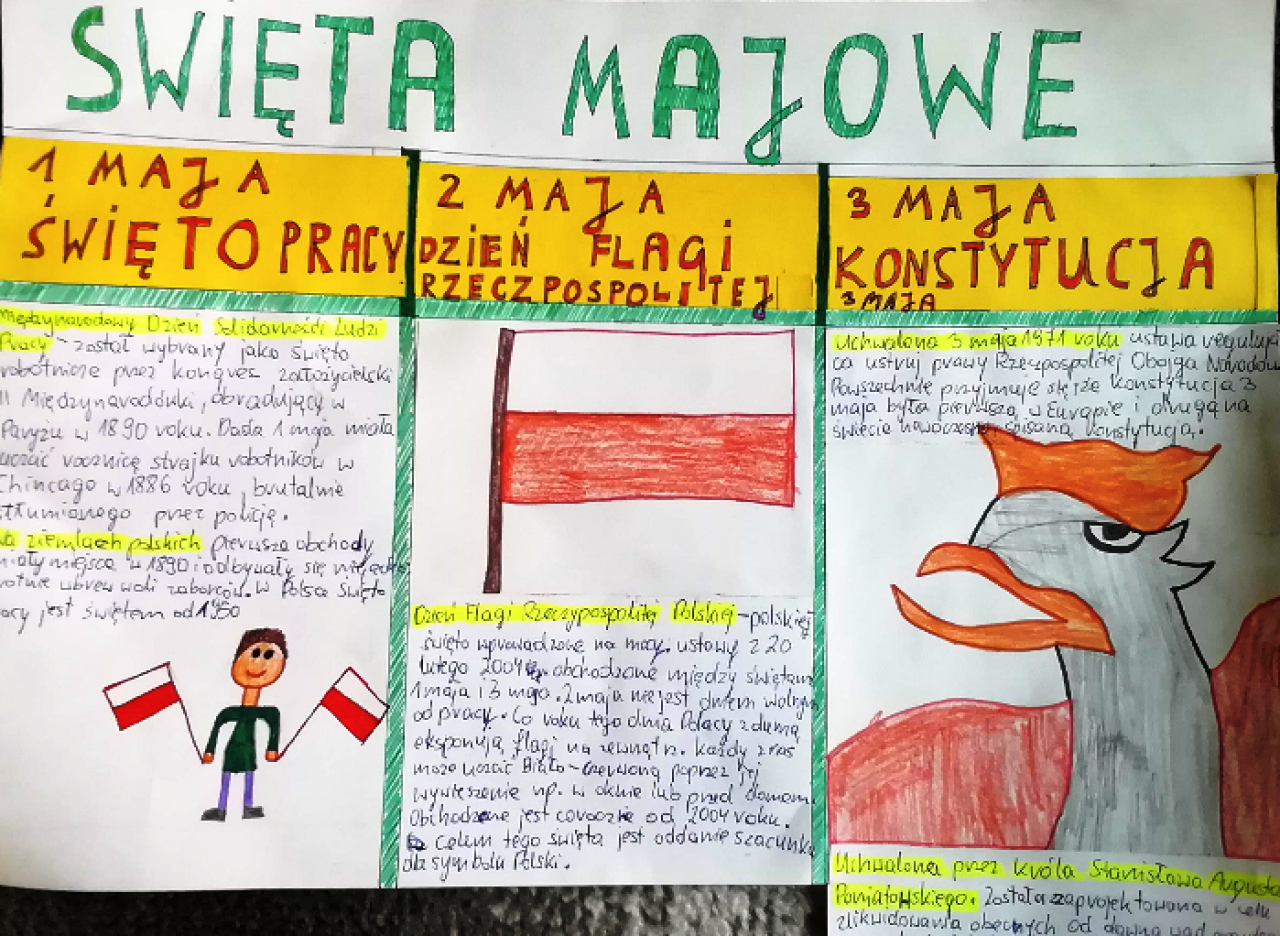 ŚWIĘTA MAJOWE
1 MAJA
ŚWIĘTO PRACY
Międzynarodowy Dzień Solidarności Ludzi
Pracy - został wybrany jako święto
robotnicze przez kongres założycielski
II Międzynarodówki, obradujący w
Paryżu w 1890 roku. Data 1 maja miała
uczcić rocznicę strajku robotników w
Chincago w 1886 roku, brutalnie
stłumionego przez policję.
Na ziemiach polskich pierwsze obchody
miały miejsce w 1890 i odbywały się
wbrew woli zaborców. W Polsce święto
pracy jest świętem od 1950
2 MAJA
DZIEŃ FLAGI
RZECZPOSPOLITEJ
Dzień Flagi Rzeczypospolitej Polskiej - polskiej
święto wprowadzone na mocy ustawy z 20
lutego 2004 r. obchodzone między świętami
1 maja i 3 maja. 2 maja nie jest dniem wolnym
od pracy. Co roku tego dnia Polacy z dumą
eksponują flagi na zewnątrz. Każdy z nas
może uczcić Biało-czerwoną poprzez jej
wywieszenie np. w oknie lub przed domem.
Obchodzone jest corocznie od 2004 roku.
Celem tego święta jest oddanie szacunku
dla symbolu Polski.
3 MAJA
KONSTYTUCJA
3 MAJA
Uchwalona 3 maja 1971 roku ustawa regulują
ca ustruj prawy Rzeczpospolitej Obojga Narodów
Powszechnie przyjmuje się że Konstytucja 3
maja była pierwszą w Europie i drugą na
świecie nowoczesną spisaną konstytucją.
Uchwalona przez króla Stanisława Augusta
Poniatowskiego. Została zaprojektowana w celu
zlikwidowania obecnych od dawna wad